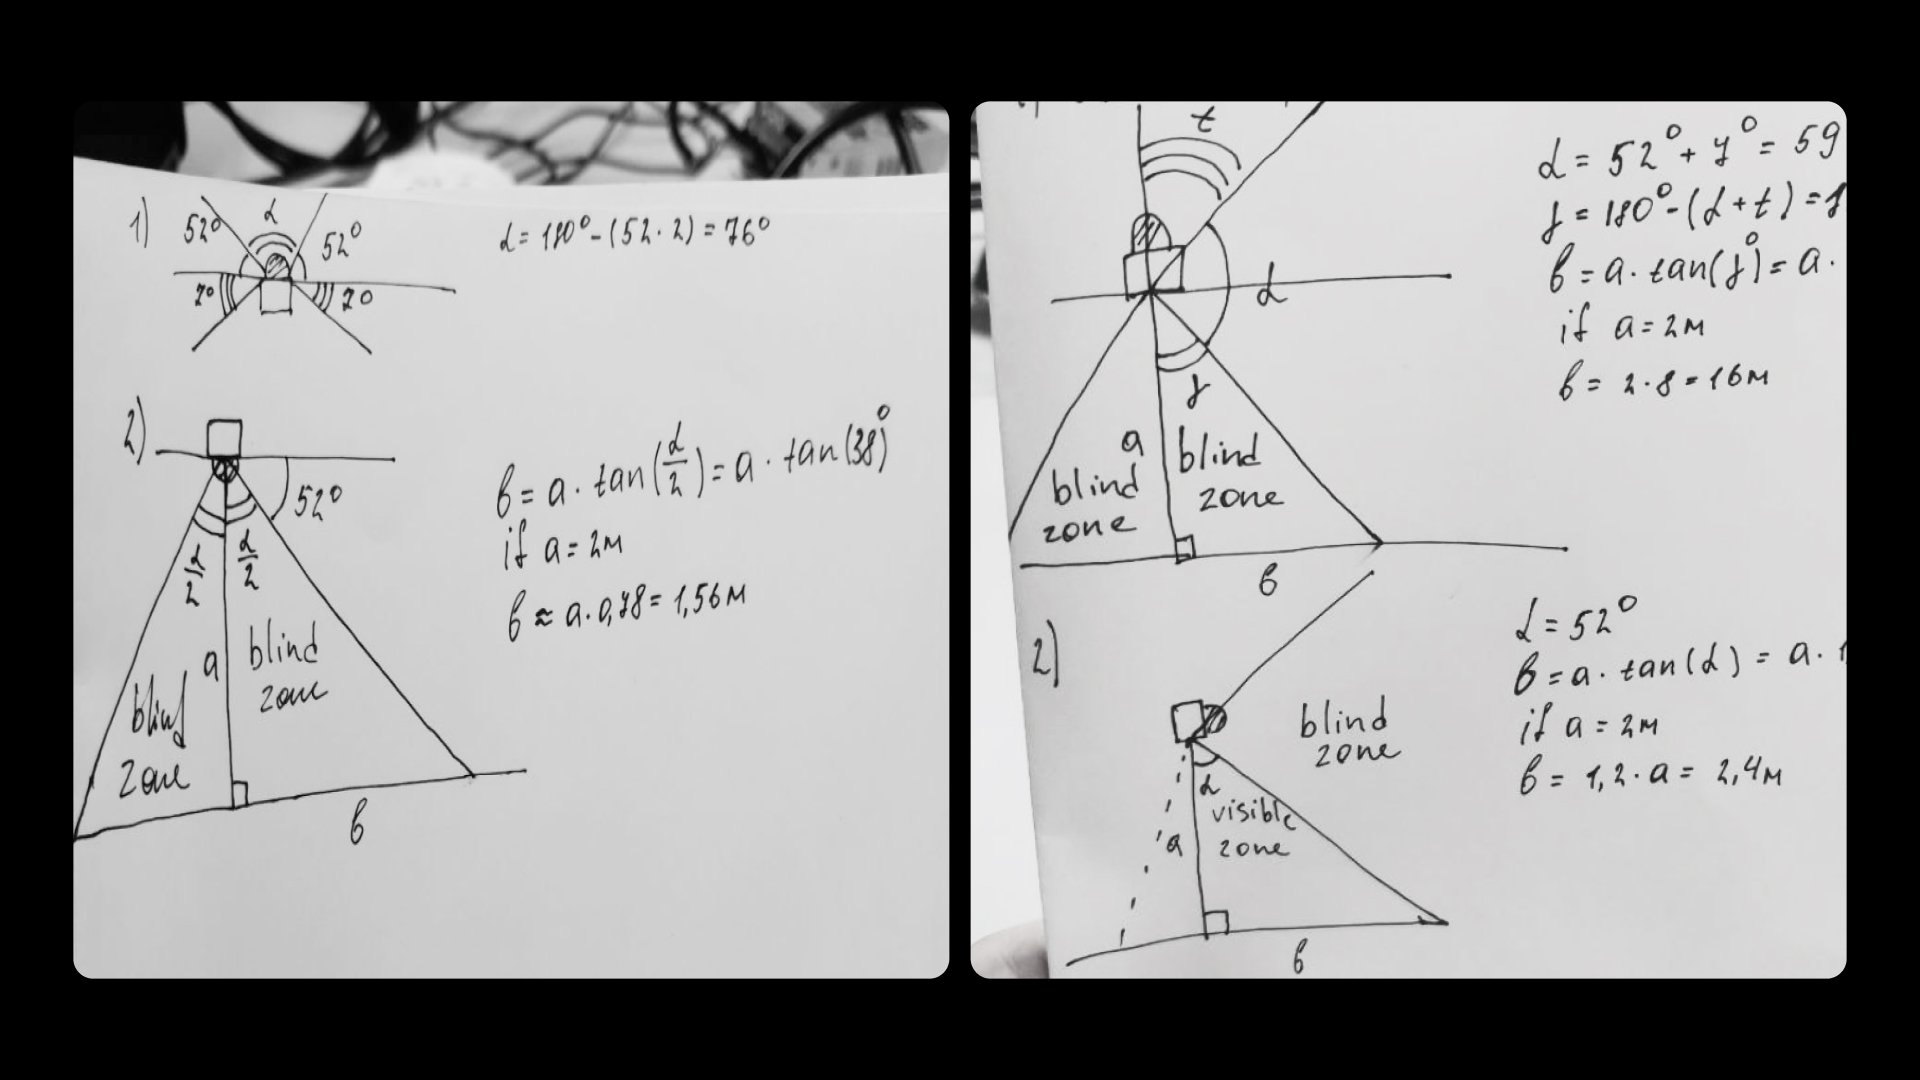 1)
52°
α
52°
7°
7°
α = 180° - (52 · 2) = 76°
2)
52°
α/2
α/2
a
blind
zone
blind
zone
в
в = a · tan(α/2) = a · tan(38)°
if a = 2м
в ≈ a · 0,78 = 1,56м
t
α
γ
a
blind
zone
blind
zone
в
α = 52° + 7° = 59
γ = 180° - (α + t) =
в = a · tan(γ)° = a ·
if a = 2м
в = 2 · 8 = 16м
2)
blind
zone
α
visible
zone
a
в
α = 52°
в = a · tan(α) = a · 1
if a = 2м
в = 1,2 · a = 2,4м